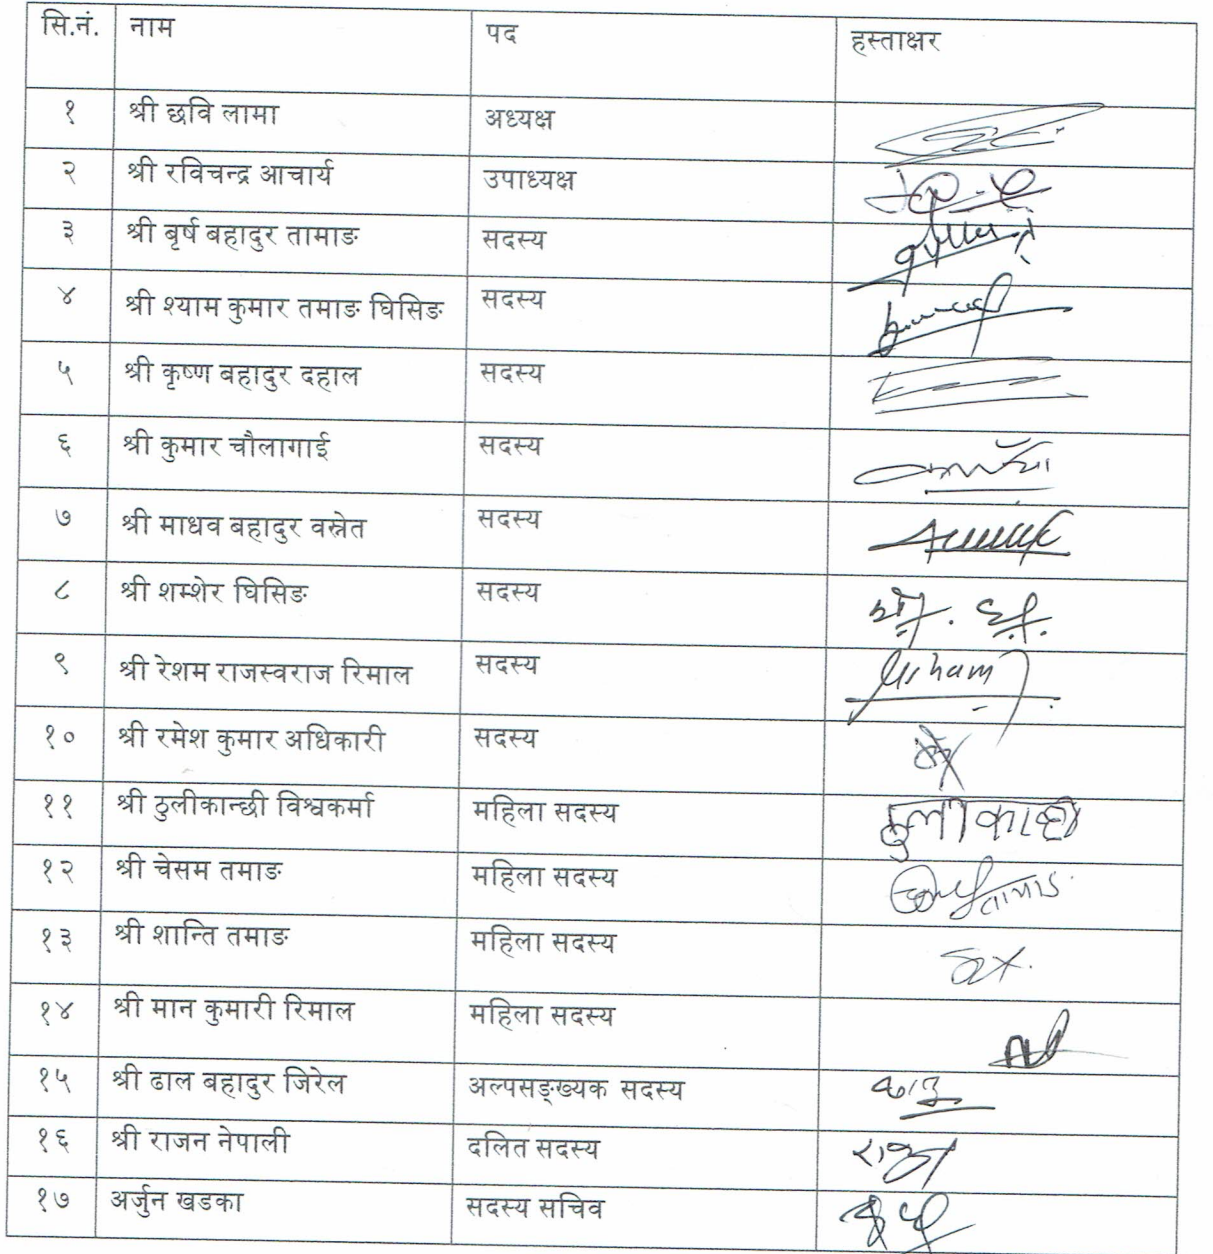 सि.नं. नाम पद हस्ताक्षर
१ श्री छवि लामा अध्यक्ष
२ श्री रविचन्द्र आचार्य उपाध्यक्ष
३ श्री बृर्ष बहादुर तामाङ सदस्य
४ श्री श्याम कुमार तमाङ घिसिङ सदस्य
५ श्री कृष्ण बहादुर दहाल सदस्य
६ श्री कुमार चौलागाई सदस्य
७ श्री माधव बहादुर वस्नेत सदस्य
८ श्री शम्शेर घिसिङ सदस्य
९ श्री रेशम राजस्वराज रिमाल सदस्य
१० श्री रमेश कुमार अधिकारी सदस्य
११ श्री ठुलीकान्छी विश्वकर्मा महिला सदस्य
१२ श्री चेसम तमाङ महिला सदस्य
१३ श्री शान्ति तमाङ महिला सदस्य
१४ श्री मान कुमारी रिमाल महिला सदस्य
१५ श्री ढाल बहादुर जिरेल अल्पसङ्ख्यक सदस्य
१६ श्री राजन नेपाली दलित सदस्य
१७ अर्जुन खडका सदस्य सचिव